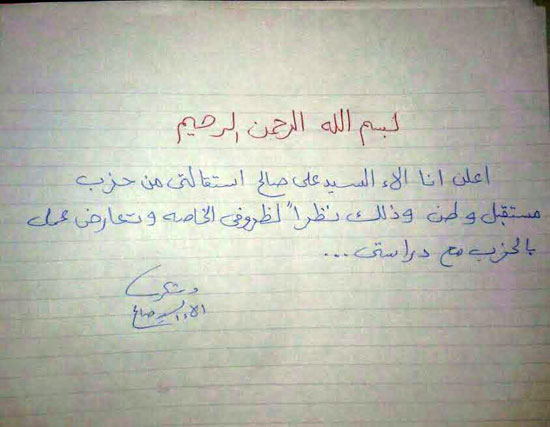 بسم الله الرحمن الرحيم
اعلن انا الاء السيد على صالح استقالتى من حزب
مستقبل وطن وذلك نظراً لظروفى الخاصه وتعارض عمل
بالحزب مع دراستى ...
وشكرا
الاء السيد صالح